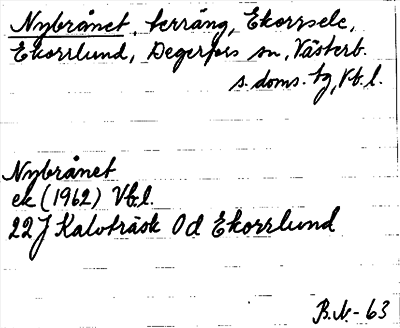 Nybrånet, terräng, Ekorrsele,
Ekorrlund, Degerfors sn, Västerb.
s. doms. tg, Vb. l.
Nybrånet
ek (1962) Vb.l.
22J Kalvträsk 0d Ekorrlund
B.N.-63